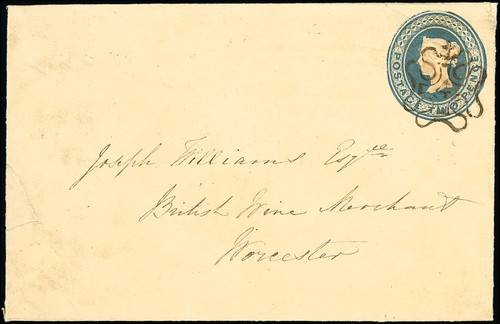 POSTAGE TWO PENCE
Joseph Williams Esqre
British Wine Merchant
Worcester